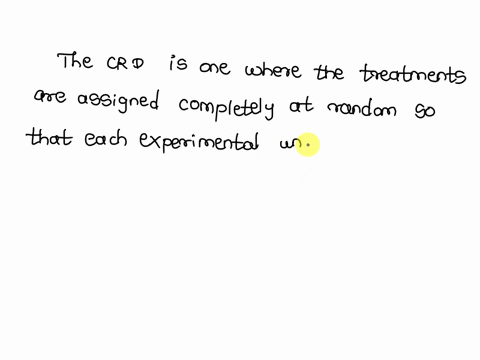 The CRD is one where the treatments
are assigned completely at random so
that each experimental un